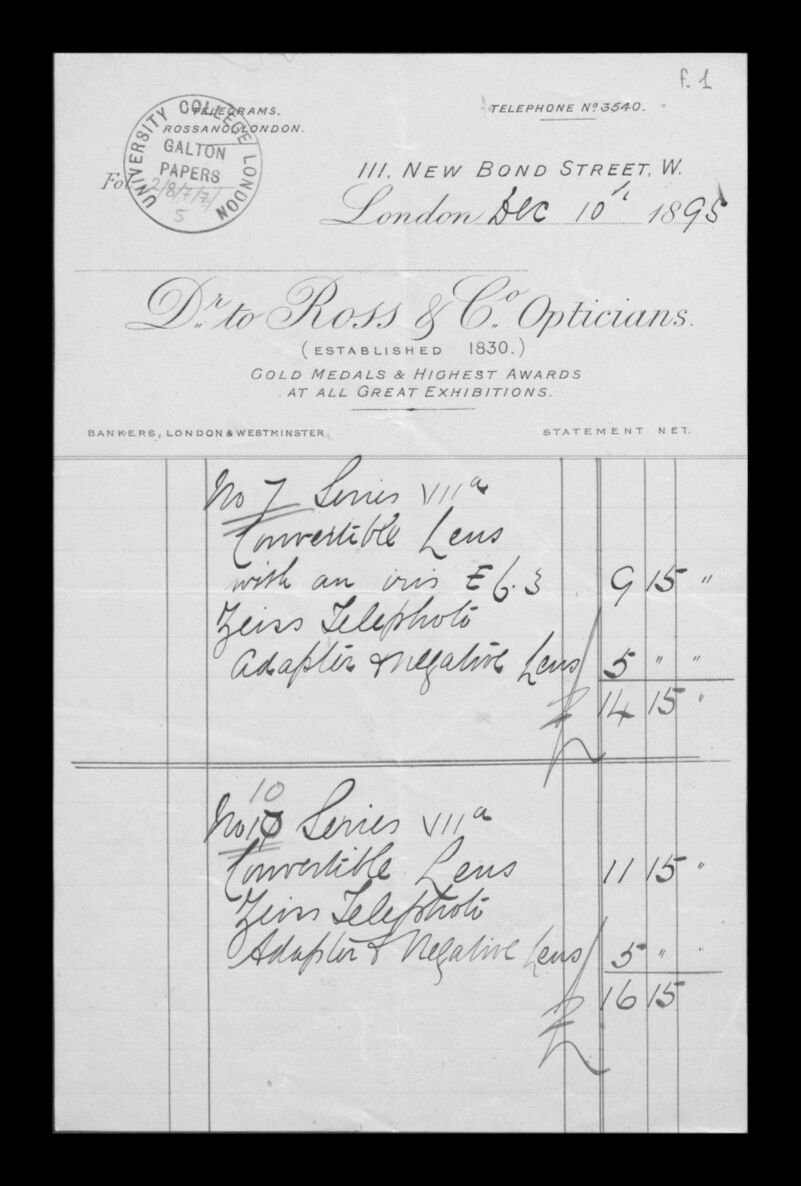 f. 1
TELEGRAMS,
ROSSANO, LONDON.
TELEPHONE Nº 3540.
UNIVERSITY COLLEGE LONDON
GALTON
PAPERS
2/8/7/7/
5
Fol
111, NEW BOND STREET, W.
London Dec 10th 1895
Dr. to Ross & Co. Opticians.
(ESTABLISHED 1830.)
GOLD MEDALS & HIGHEST AWARDS
AT ALL GREAT EXHIBITIONS.
BANKERS, LONDON & WESTMINSTER.
STATEMENT NET.
No 7 Series VIIa
Convertible Lens
with an iris F 6.3 9 15 "
Zeiss Telephoto
Adapter & Negative Lens 5 " "
£ 14 15 "
10
No 10 Series VIIa
Convertible Lens 11 15 "
Zeiss Telephoto
Adapter & Negative Lens 5 " "
£ 16 15